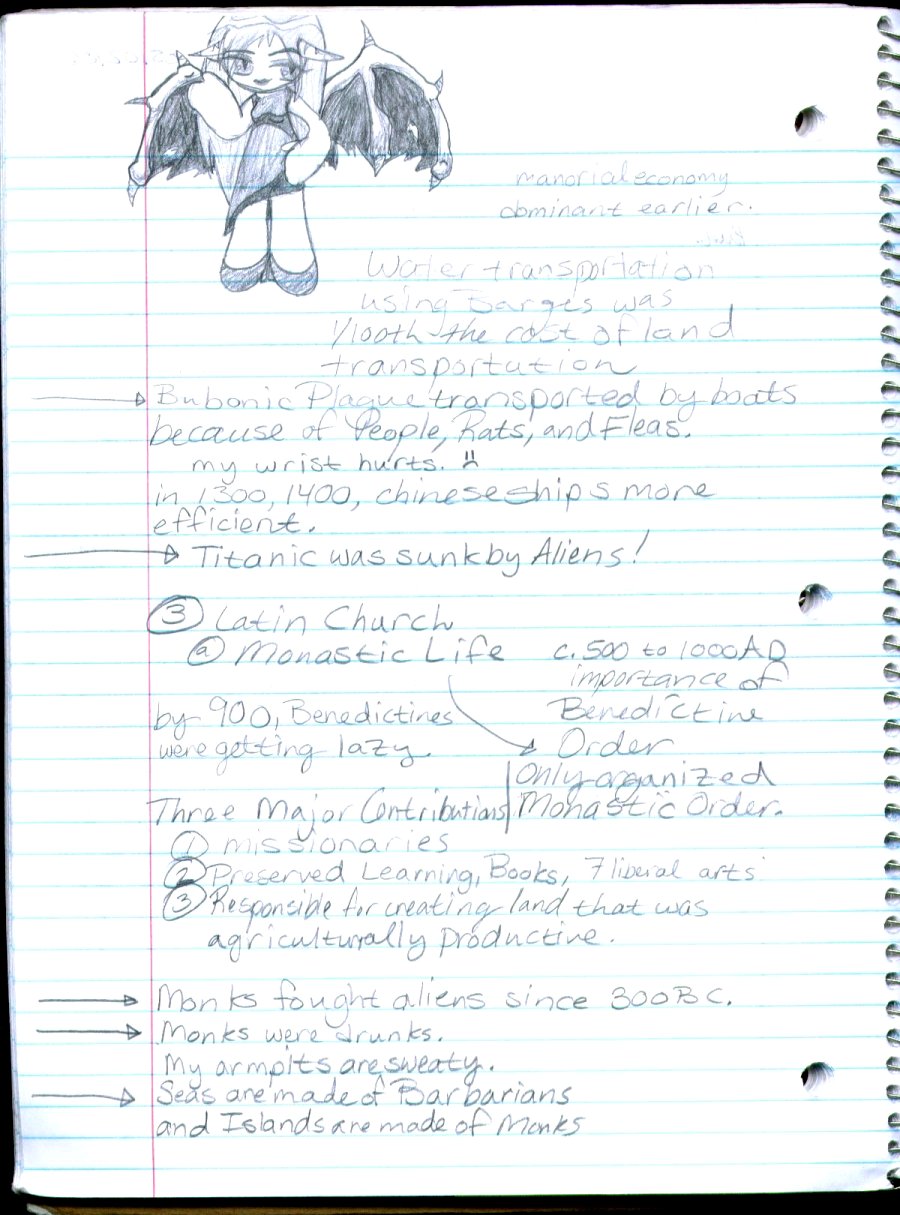 manorial economy
dominant earlier.
Water transportation
using Barges was
1/100th the cost of land
transportation
Bubonic Plague transported by boats
because of People, Rats, and Fleas.
my wrist hurts.
in 1300, 1400, chinese ships more
efficient.
Titanic was sunk by Aliens!
③ Latin Church
ⓐ Monastic Life
c. 500 to 1000 AD
importance of
Benedictine
Order
by 900, Benedictines
were getting lazy.
Only organized
Monastic Order.
Three Major Contributions
① missionaries
② Preserved Learning, Books, 7 liberal arts
③ Responsible for creating land that was
agriculturally productive.
Monks fought aliens since 300 BC.
Monks were drunks.
My armpits are sweaty.
Seas are made of Barbarians
and Islands are made of Monks